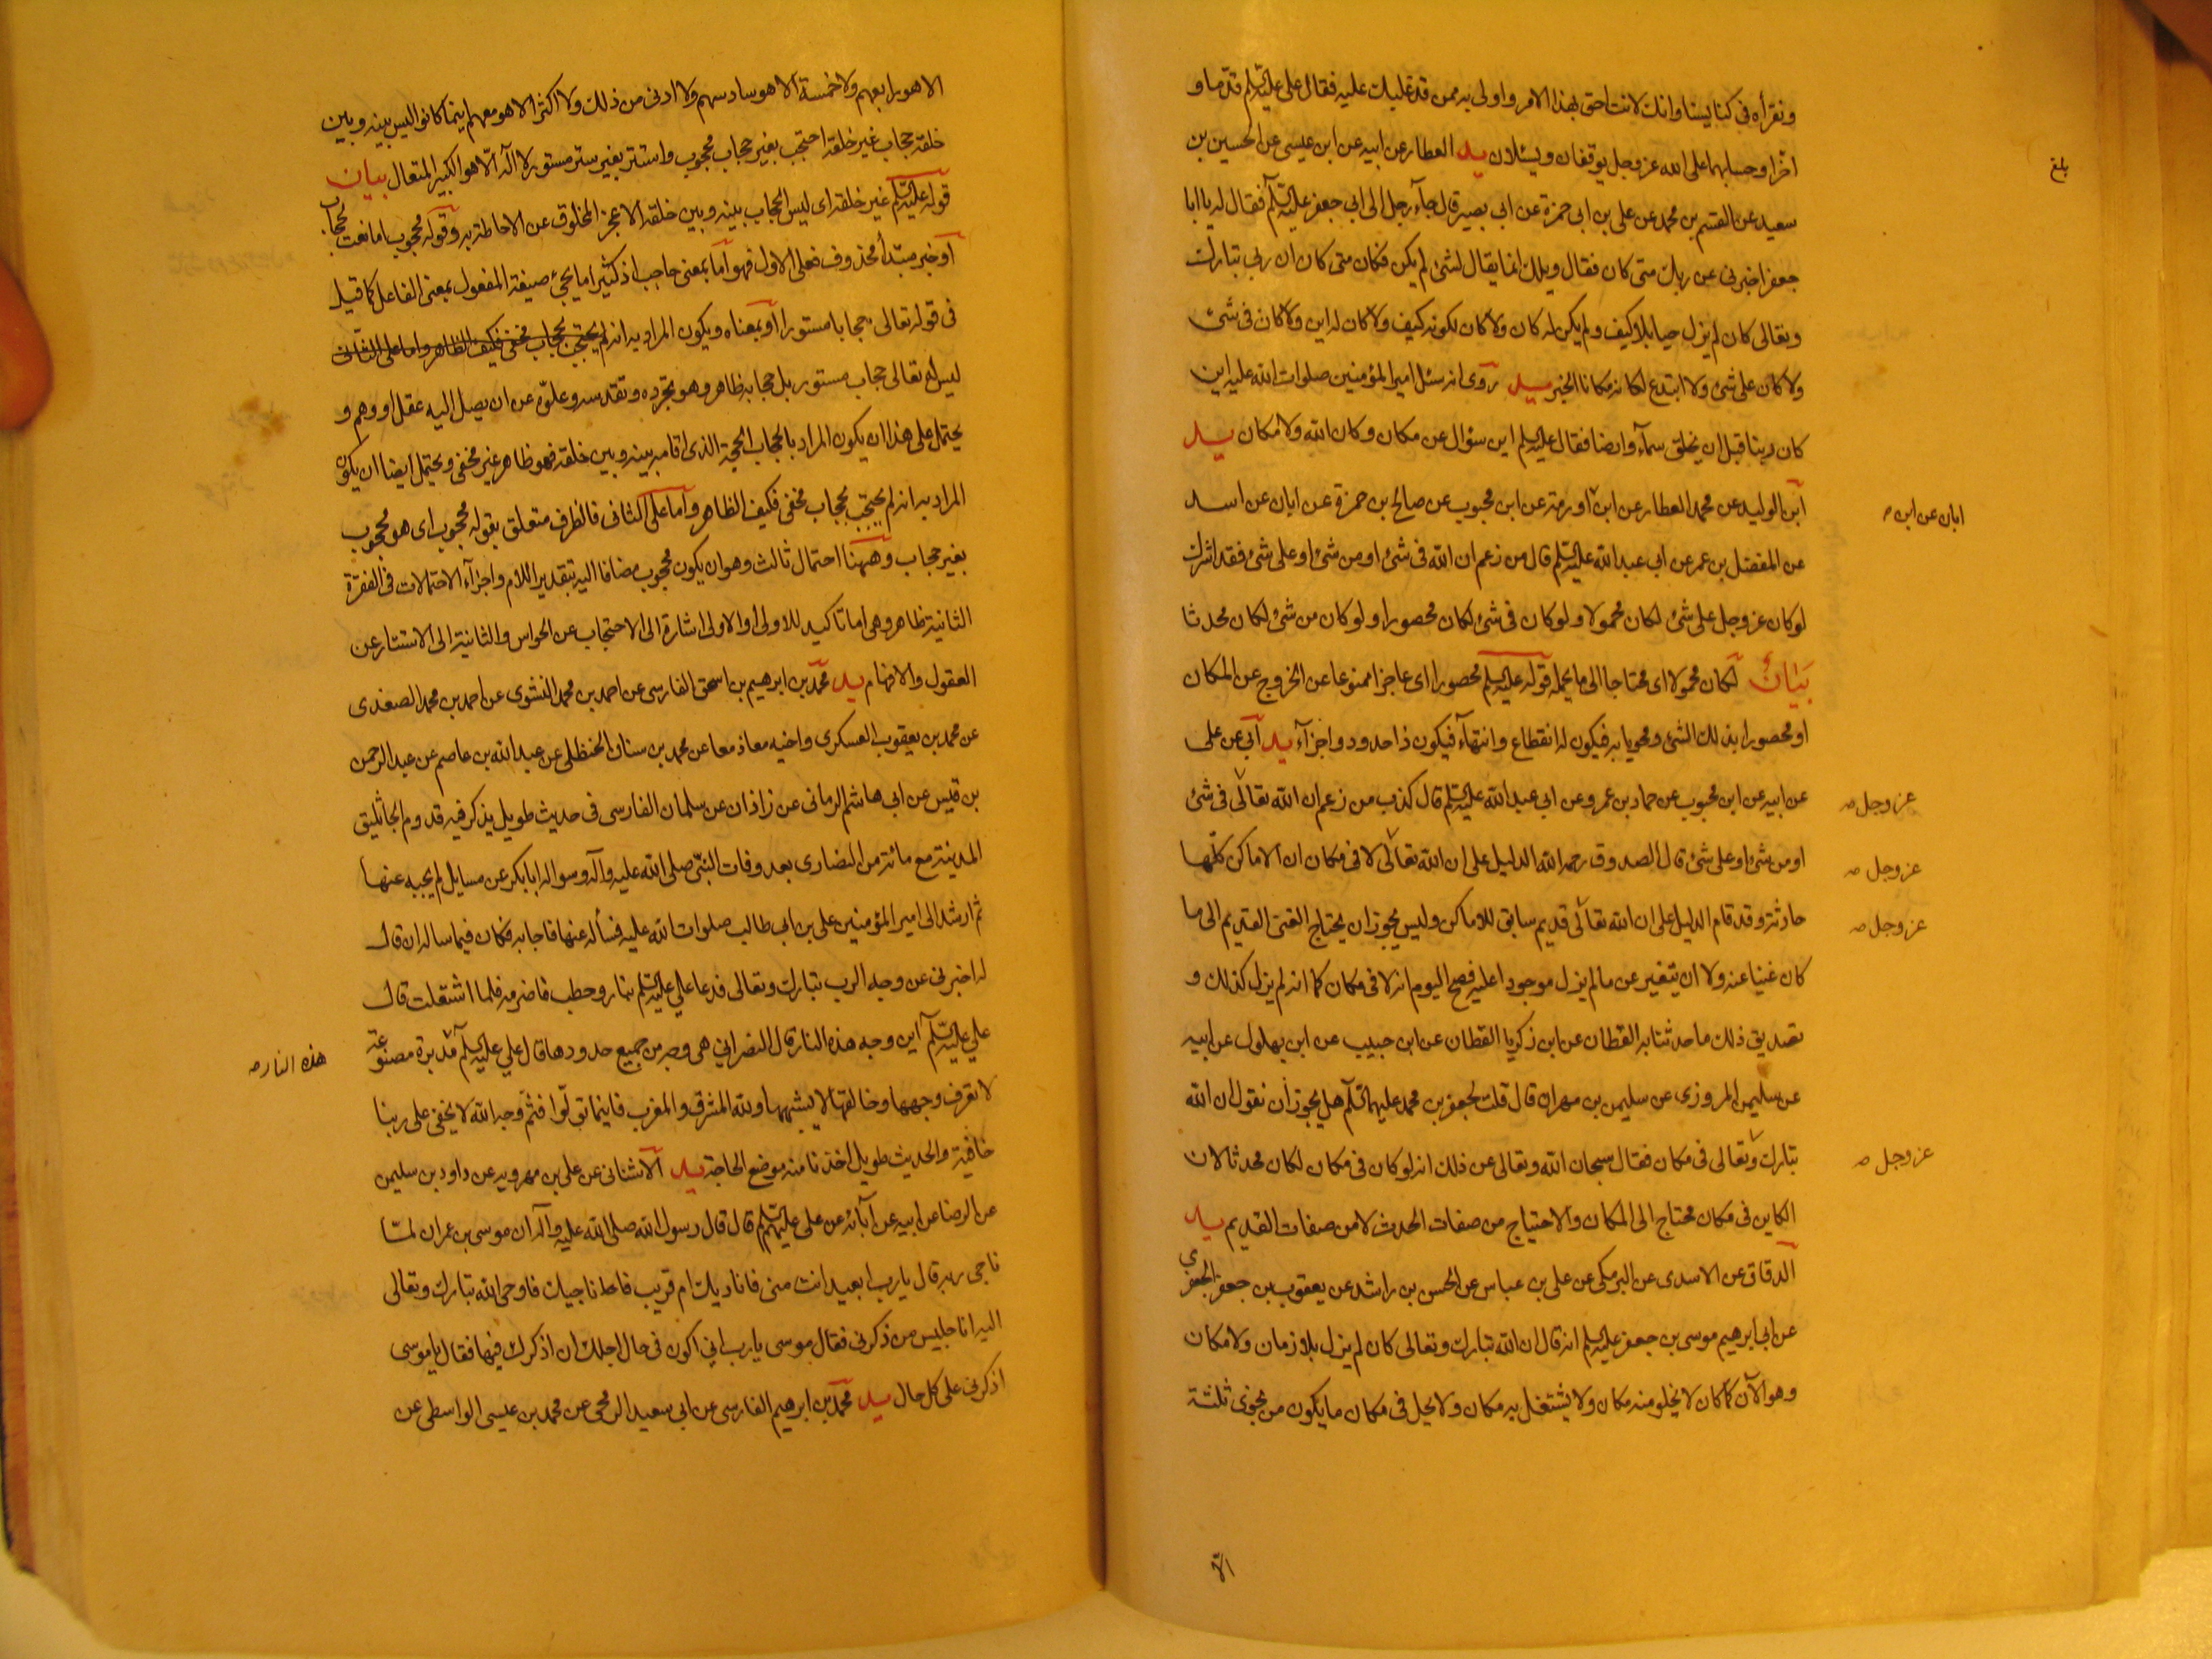 ونقرأه في كتابيسنا وانك لانت احق بهذا الامر واولى به ممن قد غلبك عليه فقال علي عليه السلم قدّما و
اخّرا وحسابهما على الله عز وجل يوقفان ويسئلان يد العطار عن ابيه عن ابن عيسى عن الحسين بن
بلغ
سعيد عن القسم بن محمد عن علي بن ابى حمزة عن ابى بصير قال جآء رجل الى ابى جعفر عليه السلم فقال له يا ابا
جعفر اخبرني عن ربك متى كان فقال ويلك انما يقال لشئ لم يكن فكان متى كان ان ربي تبارك
وتعالى كان لم يزل حيا بلا كيف ولم يكن له كان ولا كان لكونه كيف ولا كان له اين ولا كان في شئ
ولا كان على شئ ولا ابتدع لكانه مكانا الخبر يد روى انه سئل امير المؤمنين صلوات الله عليه اين
كان ربنا قبل ان يخلق سمآء وارضا فقال عليه السلم اين سؤال عن مكان وكان الله ولا مكان يد
ابن الوليد عن محمد العطار عن ابن اورمة عن ابن محبوب عن صالح بن حمزة عن ابان عن اسد
ابان عن ابن صح
عن المفضل بن عمر عن ابي عبد الله عليه السلم قال من زعم ان الله في شئ او من شئ او على شئ فقد اشرك
لو كان عز وجل على شئ لكان محمولا ولو كان في شئ لكان محصورا ولو كان من شئ لكان محدثا
بيان لكان محمولا اى محتاجا الى ما يحمله قوله عليه السلم محصورا اى عاجزا ممنوعا عن الخروج عن المكان
او محصورا بذلك الشئ ومحويا به فيكون له انقطاع وانتهآء فيكون ذا حدود واجزآء يد ابي عن علي
عن ابيه عن ابن محبوب عن حماد بن عمرو عن ابي عبد الله عليه السلم قال كذب من زعم ان الله تعالى في شئ
عز وجل صح
او من شئ او على شئ قال الصدوق رحمه الله الدليل على ان الله تعالى لا في مكان ان الاماكن كلّها
عز وجل صح
حادثة وقد قام الدليل على ان الله تعالى قديم سابق للاماكن وليس يجوز ان يحتاج الغنى القديم الى ما
عز وجل صح
كان غنيا عنه ولا ان يتغير عن ما لم يزل موجودا عليه فصح اليوم انه لا في مكان كما انه لم يزل كذلك و
تصديق ذلك ما حدثنا به القطان عن ابن زكريا القطان عن ابن حبيب عن ابن بهلول عن ابيه
عن سليمن المروزى عن سليمن بن مهران قال قلت لجعفر بن محمد عليهما السلم هل يجوز أن نقول ان الله
تبارك وتعالى في مكان فقال سبحان الله وتعالى عن ذلك انه لو كان في مكان لكان محدثا لان
عز وجل صح
الكاين في مكان محتاج الى المكان والاحتياج من صفات الحدث لا من صفات القديم يد
الدقاق عن الاسدى عن البرمكى عن علي بن عباس عن الحسن بن راشد عن يعقوب بن جعفر الجعفرى
عن ابي ابرهيم موسى بن جعفر عليه السلم انه قال ان الله تبارك وتعالى كان لم يزل بلا زمان ولا مكان
وهو الآن كما كان لا يخلو منه مكان ولا يشتغل به مكان ولا يحل في مكان ما يكون من نجوى ثلثة
الا
الا هو رابعهم ولا خمسة الا هو سادسهم ولا ادنى من ذلك ولا اكثر الا هو معهم اينما كانوا ليس بينه وبين
خلقه حجاب غير خلقه احتجب بغير حجاب محجوب واستتر بغير ستر مستور لا اله الّا هو الكبير المتعال بيان
قوله عليه السلم غير خلقه اى ليس الحجاب بينه وبين خلقه الا عجز المخلوق عن الاحاطة به وقوله محجوب اما نعت لحجاب
او خبر مبتدأ محذوف فعلى الاول فهو اما بمعنى حاجب اذ كثيرا ما يجئ صيغة المفعول بمعنى الفاعل كما قيل
في قوله تعالى حجابا مستورا او بمعناه ويكون المراد به انه لم يحتجب بحجاب مخفي فكيف الظاهر واما على الثانى
ليس له تعالى حجاب مستور بل حجابه ظاهر وهو تجرده وتقدسه وعلوّه عن ان يصل اليه عقل او وهم و
يحتمل على هذا ان يكون المراد بالحجاب الحجة الذي اقامه بينه وبين خلقه فهو ظاهر غير مخفى ويحتمل ايضا ان يكون
المراد به انه لم يحتجب بحجاب مخفى فكيف الظاهر واما على الثانى فالظرف متعلق بقوله محجوب اى هو محجوب
بغير حجاب وههنا احتمال ثالث وهو ان يكون محجوب مضافا اليه بتقدير اللام واجرآء الاحتمالات في الفقرة
الثانية ظاهر وهى اما تاكيد للاولى او الاولى اشارة الى الاحتجاب عن الحواس والثانية الى الاستتار عن
العقول والافهام يد محمد بن ابرهيم بن اسحق الفارسى عن احمد بن محمد النشوى عن احمد بن محمد الصغدى
عن محمد بن يعقوب العسكرى واخيه معاذ معا عن محمد بن سنان الحنظلى عن عبد الله بن عاصم عن عبد الرحمن
بن قيس عن ابى هاشم الرمانى عن زاذان عن سلمان الفارسى في حديث طويل يذكر فيه قدوم الجاثليق
المدينة مع مائة من النصارى بعد وفات النبّى صلى الله عليه وآله وسواله ابا بكر عن مسايل لم يجبه عنها
ثم ارشد الى امير المؤمنين علي بن ابي طالب صلوات الله عليه فسأله عنها فاجابه فكان فيما ساله ان قال
له اخبرني عن وجه الرب تبارك وتعالى فدعا علي عليه السلم بنار وحطب فاضرمه فلما اشتعلت قال
علي عليه السلم اين وجه هذه النار قال النصراني هى وجه من جميع حدودها قال علي عليه السلم مدبرة مصنوعة
هذه النار صح
لا تعرف وجهها وخالقها لا يشبهها ولله المشرق والمغرب فاينما تولّوا فثمّ وجه الله لا يخفى على ربنا
خافية والحديث طويل اخذنا منه موضع الحاجة يد الاشنانى عن علي بن مهرويه عن داود بن سليمن
عن الرضا عن ابيه عن آبائه عن علي عليهم السلم قال قال رسول الله صلى الله عليه وآله ان موسى بن عمران لمّا
ناجى ربه قال يا رب ابعيد انت منى فاناديك ام قريب فاناجيك فاوحى الله تبارك وتعالى
اليه انا جليس من ذكرنى فقال موسى يا رب اني اكون في حال اجلك ان اذكرك فيها فقال يا موسى
اذكرنى على كل حال يد محمد بن ابرهيم الفارسى عن ابى سعيد الرمحى عن محمد بن عيسى الواسطى عن